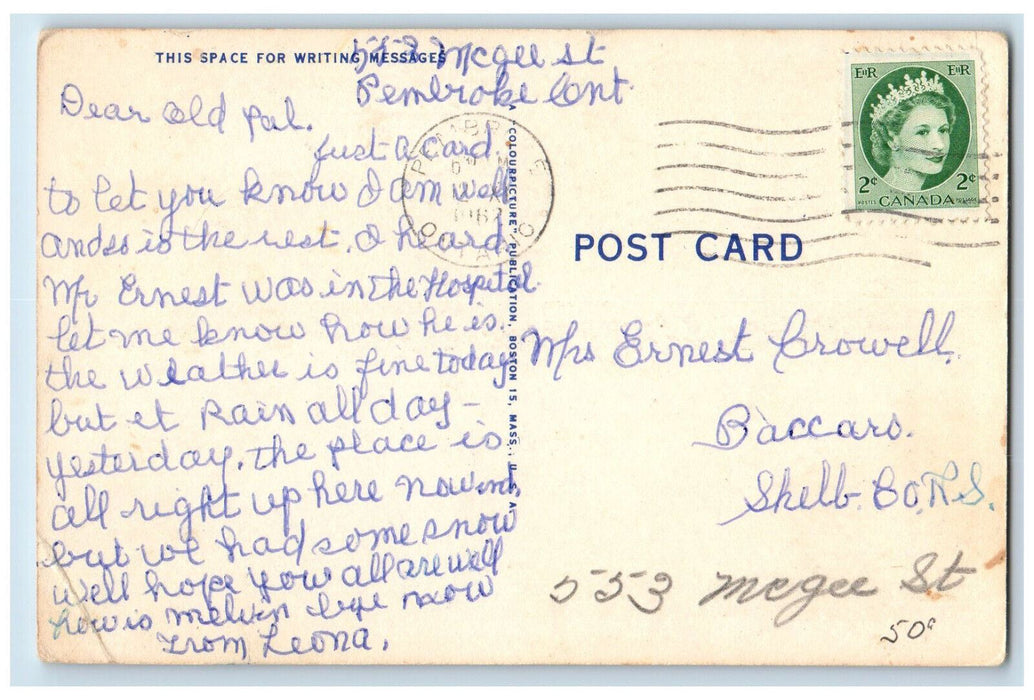 THIS SPACE FOR WRITING MESSAGES
553 Mcgee st
Pembroke Ont.
Dear Old pal.
just a card.
to let you know I am well
and so is the rest. I heard.
Mr Ernest was in the Hospital.
let me know how he is.
the weather is fine today
but it Rain all day -
yesterday. the place is
all right up here now
but we had some snow
well hope you all are well
how is melvin eye now
From Leona.
A "COLOURPICTURE" PUBLICATION, BOSTON 15, MASS., U.S.A.
PEMBROKE
ONTARIO
EIIR EIIR
2¢ 2¢
POSTES CANADA POSTAGE
POST CARD
Mrs Ernest Crowell.
Baccaro.
Shelb. Co, N.S.
553 mcgee St
50¢